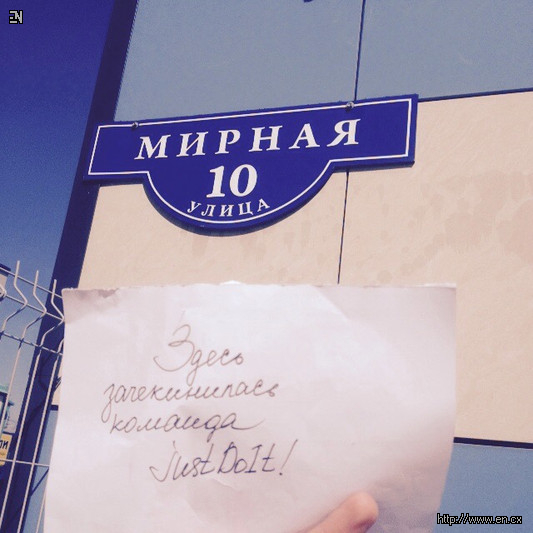 EN
МИРНАЯ
10
УЛИЦА
Здесь
зачекинилась
команда
justDoIt!
http://www.en.cx